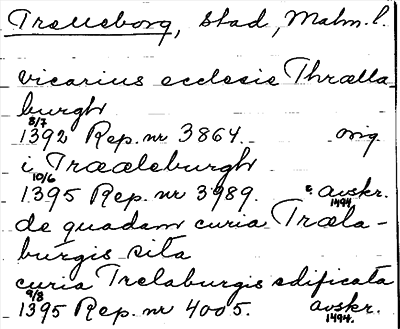 Trelleborg, stad, Malm. l.
vicarius ecclesie Thrælla
burgh
8/7
1392 Rep. nr 3864. orig
i Trææleburgh
10/6
1395 Rep. nr 3989. avskr.
1494
de quadam curia Træla-
burgis sita
curia Trelaburgis edificata
9/8
1395 Rep. nr 4005. avskr.
1494.